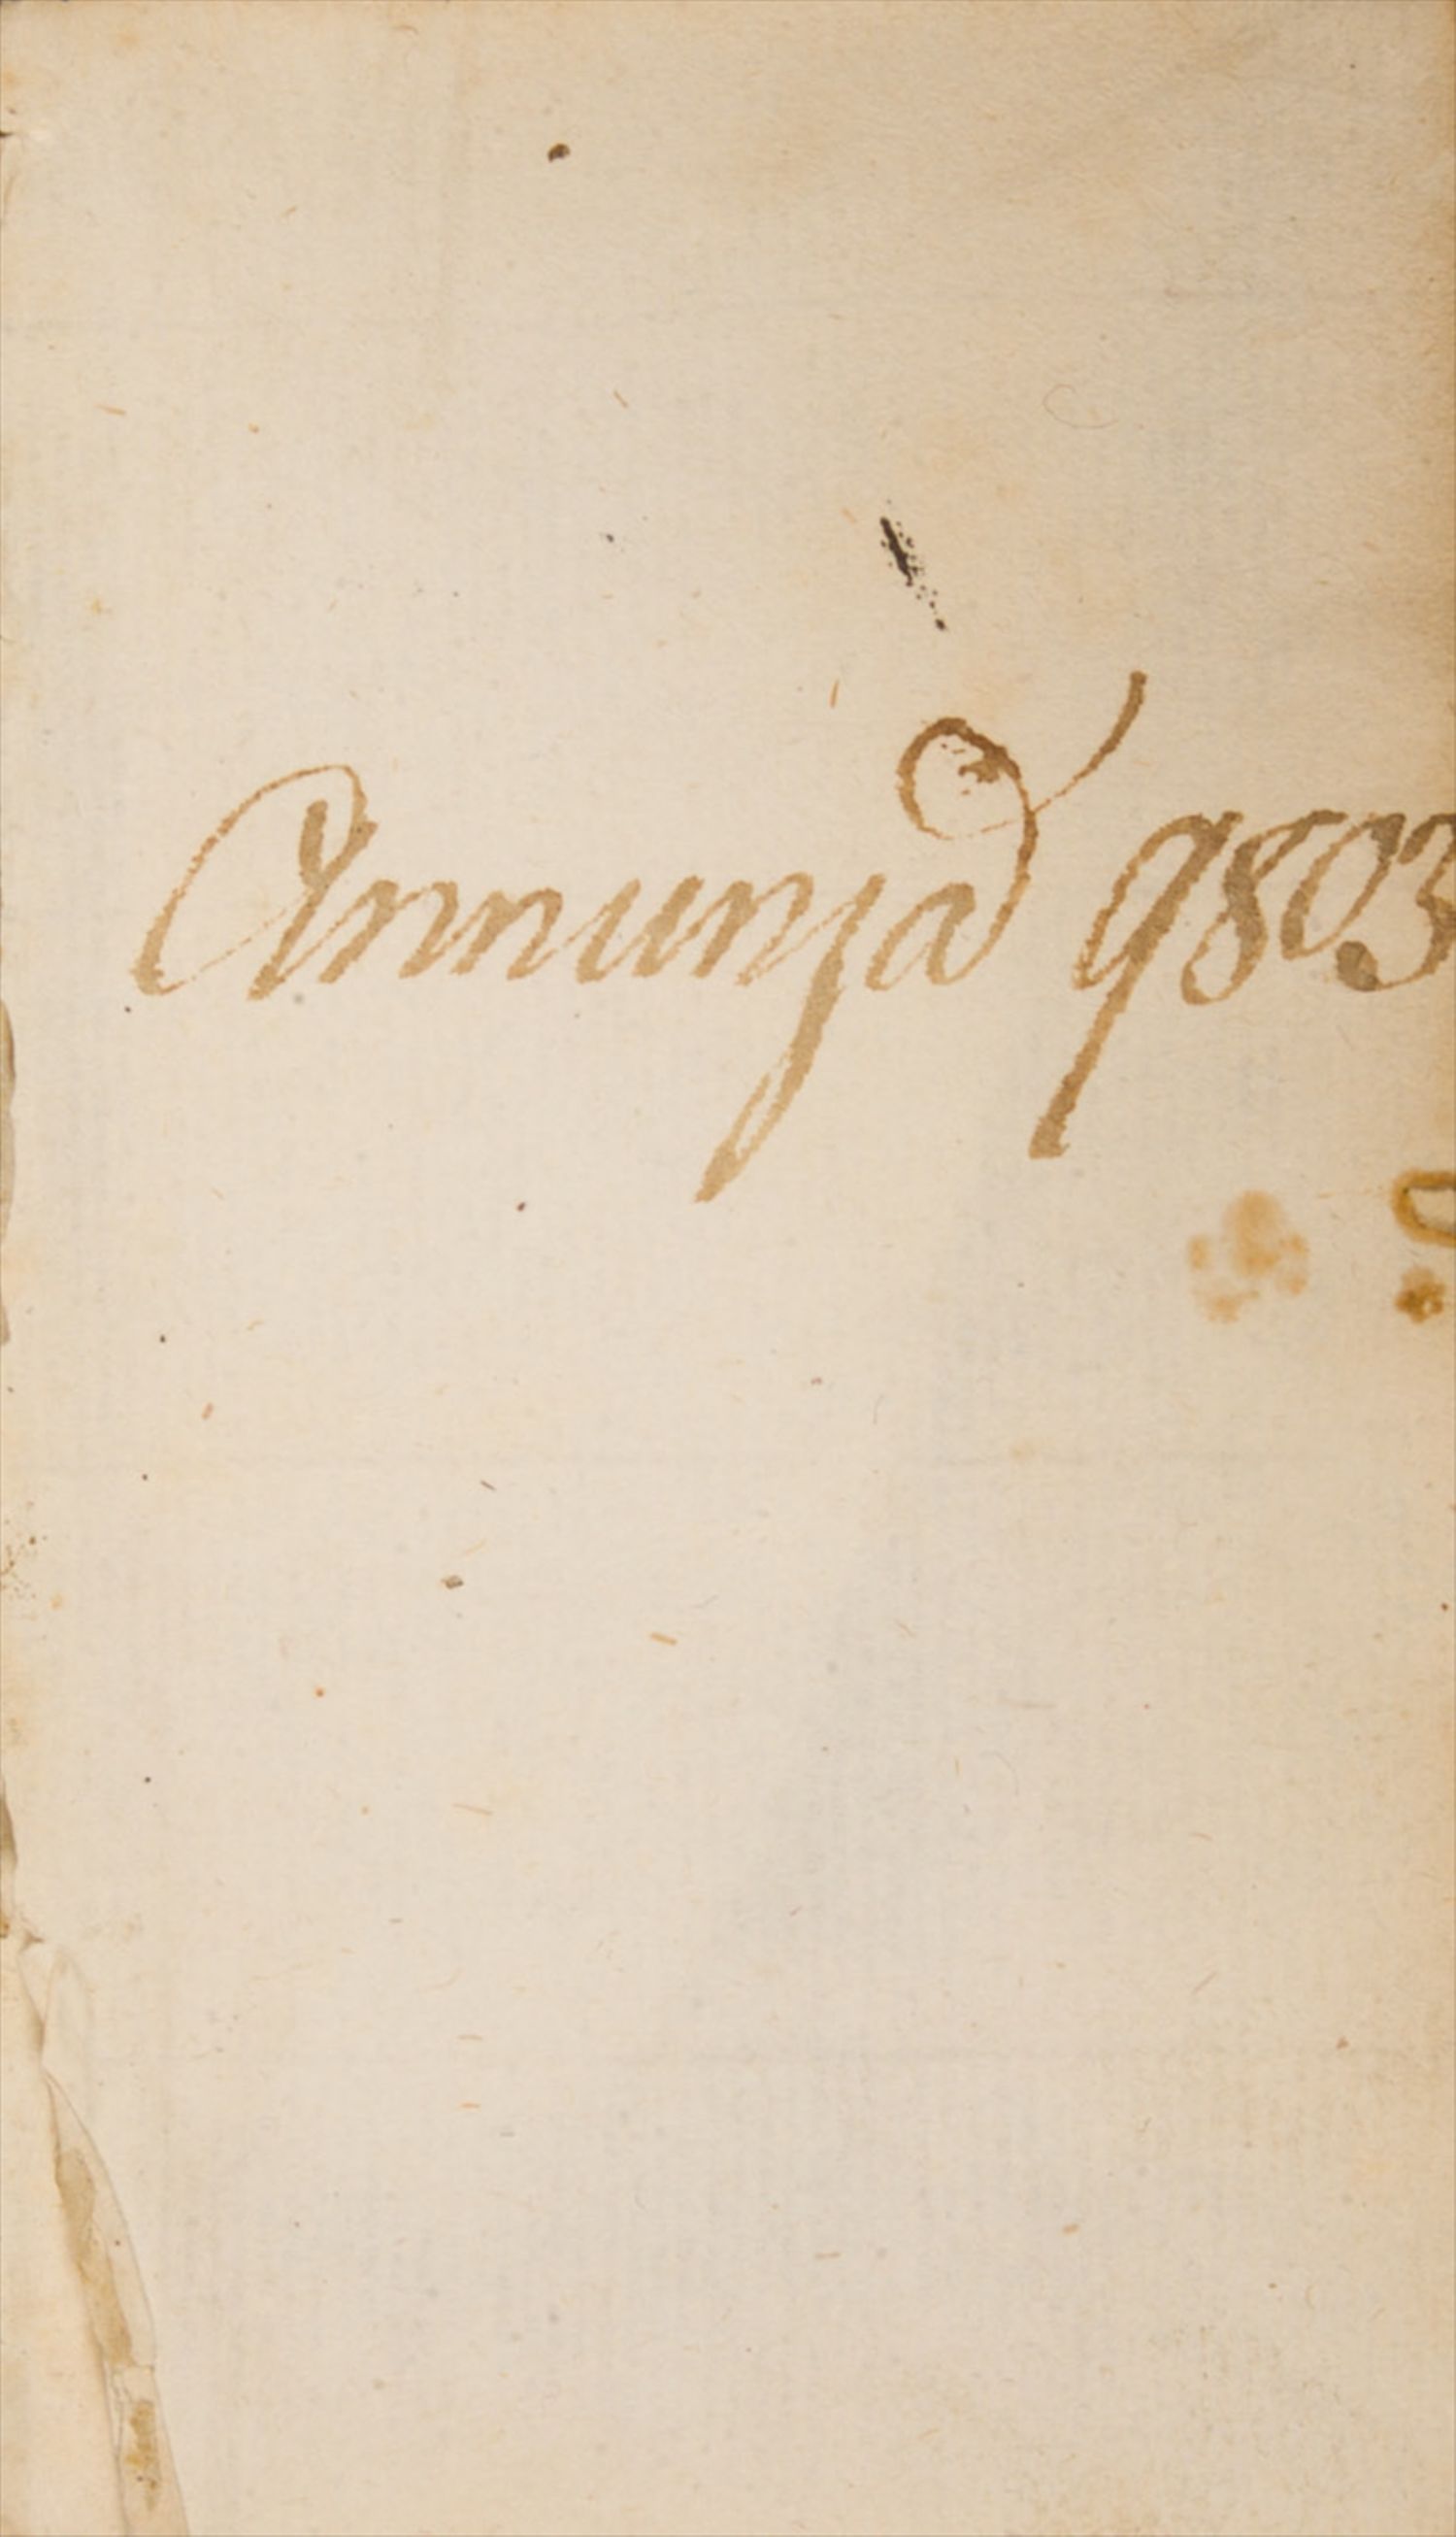 Annunjad 9803